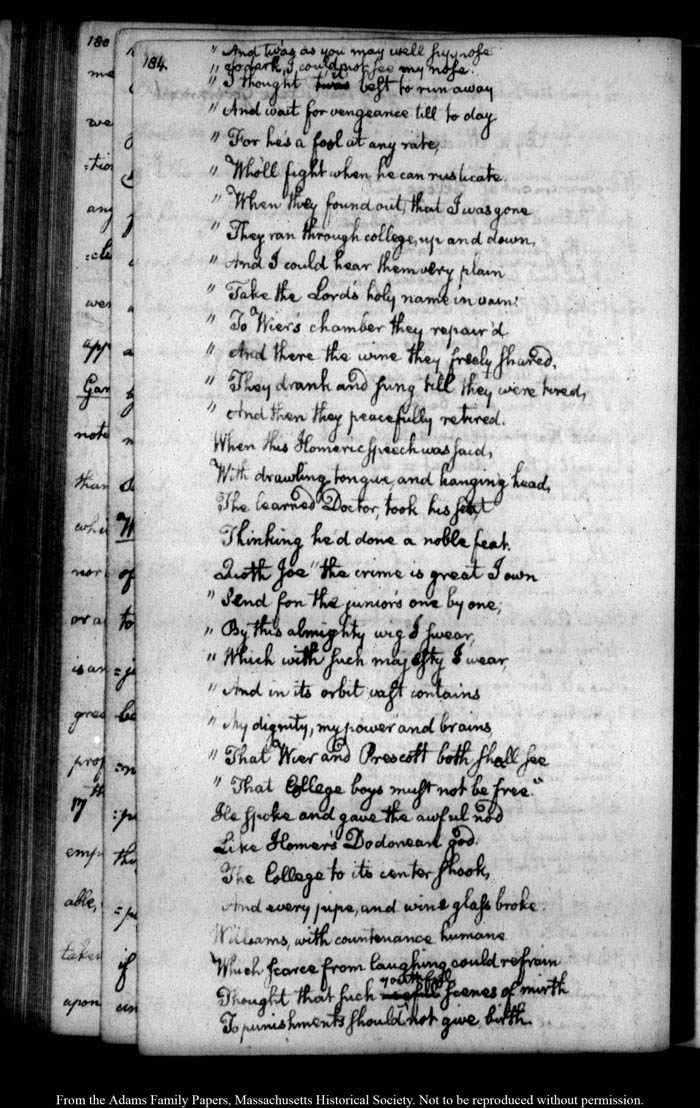 180
184.
" And twas as you may well suppose
" So dark, I could not see my nose.
" I thought twas it best to run away
" And wait for vengeance till to day
" For he's a fool at any rate,
" Who'll fight when he can rusticate.
" When they found out, that I was gone
" They ran through college, up and down,
" And I could hear them very plain
" Take the Lords holy name in vain.
" To Wier's chamber they repair'd
" And there the wine they freely shared,
" They drank and sung till they were tired,
" And then they peacefully retired.
When this Homeric speech was said,
With drawling tongue, and hanging head,
The learned Doctor, took his seat
Thinking he'd done a noble feat.
Quoth Joe " the crime is great I own
" Send for the juniors one by one,
" By this almighty wig I swear,
" Which with such majesty I wear,
" And in its orbit vast contains
" My dignity, my power and brains,
" That Wier and Prescott both shall see
" That College boys must not be free."
He spoke and gave the awful nod
Like Homer's Dodonean god.
The College to its center shook,
And every pipe, and wine glass broke.
Williams, with countenance humane
Which scarce from laughing could refrain
Thought that such youthful scenes of mirth
To punishments should not give birth.
From the Adams Family Papers, Massachusetts Historical Society. Not to be reproduced without permission.